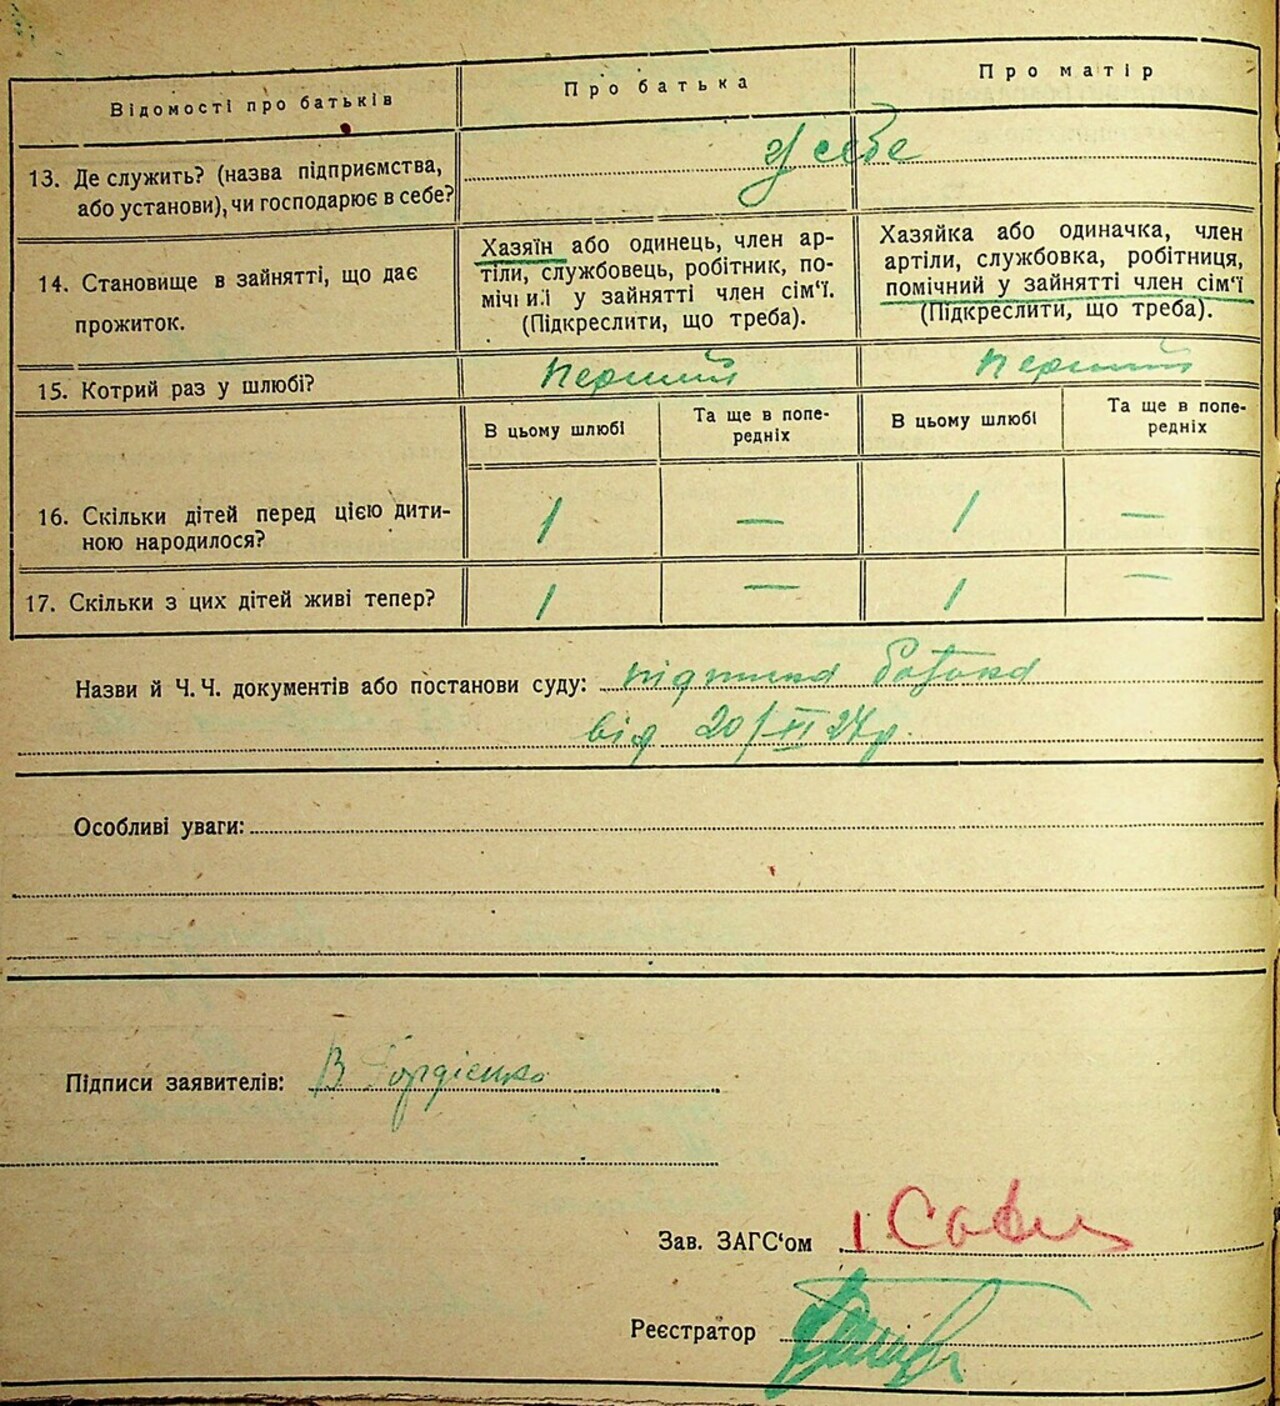 Відомості про батьків
Про батька
Про матір
13. Де служить? (назва підприємства,
або установи), чи господарює в себе?
у себе
14. Становище в зайнятті, що дає
прожиток.
Хазяїн або одинець, член ар-
тіли, службовець, робітник, по-
мічний у зайнятті член сім‘ї.
(Підкреслити, що треба).
Хазяйка або одиначка, член
артіли, службовка, робітниця,
помічний у зайнятті член сім‘ї
(Підкреслити, що треба).
15. Котрий раз у шлюбі?
Перший
Перший
В цьому шлюбі
Та ще в попе-
редніх
В цьому шлюбі
Та ще в попе-
редніх
16. Скільки дітей перед цією дити-
ною народилося?
1
—
1
—
17. Скільки з цих дітей живі тепер?
1
—
1
—
Назви й Ч. Ч. документів або постанови суду:
від 20/XI 27р.
Особливі уваги:
Підписи заявителів: В Гордієнко
Зав. ЗАГС‘ом
Реєстратор